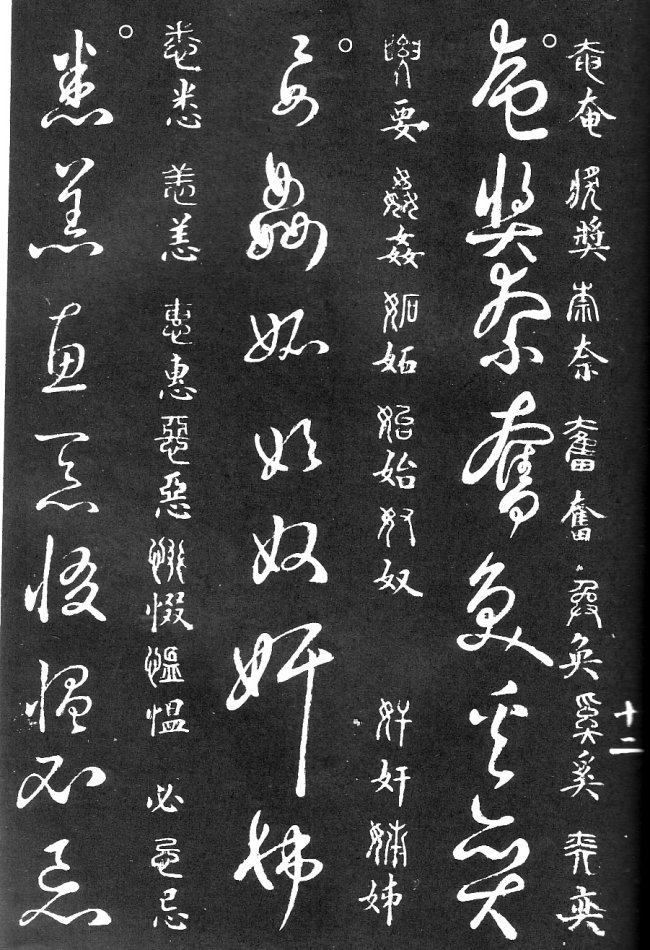 十二
奄奄奬奬奈奈奮奮奐奐奚奚奕奕
奄奬奈奮奐奚奕
要要姦姦妬妬始始奴奴奸奸姊姊
要姦妬始奴奸姊
悉悉恙恙惠惠惡惡惙惙愠愠必忌忌
悉恙惠惡惙愠必忌